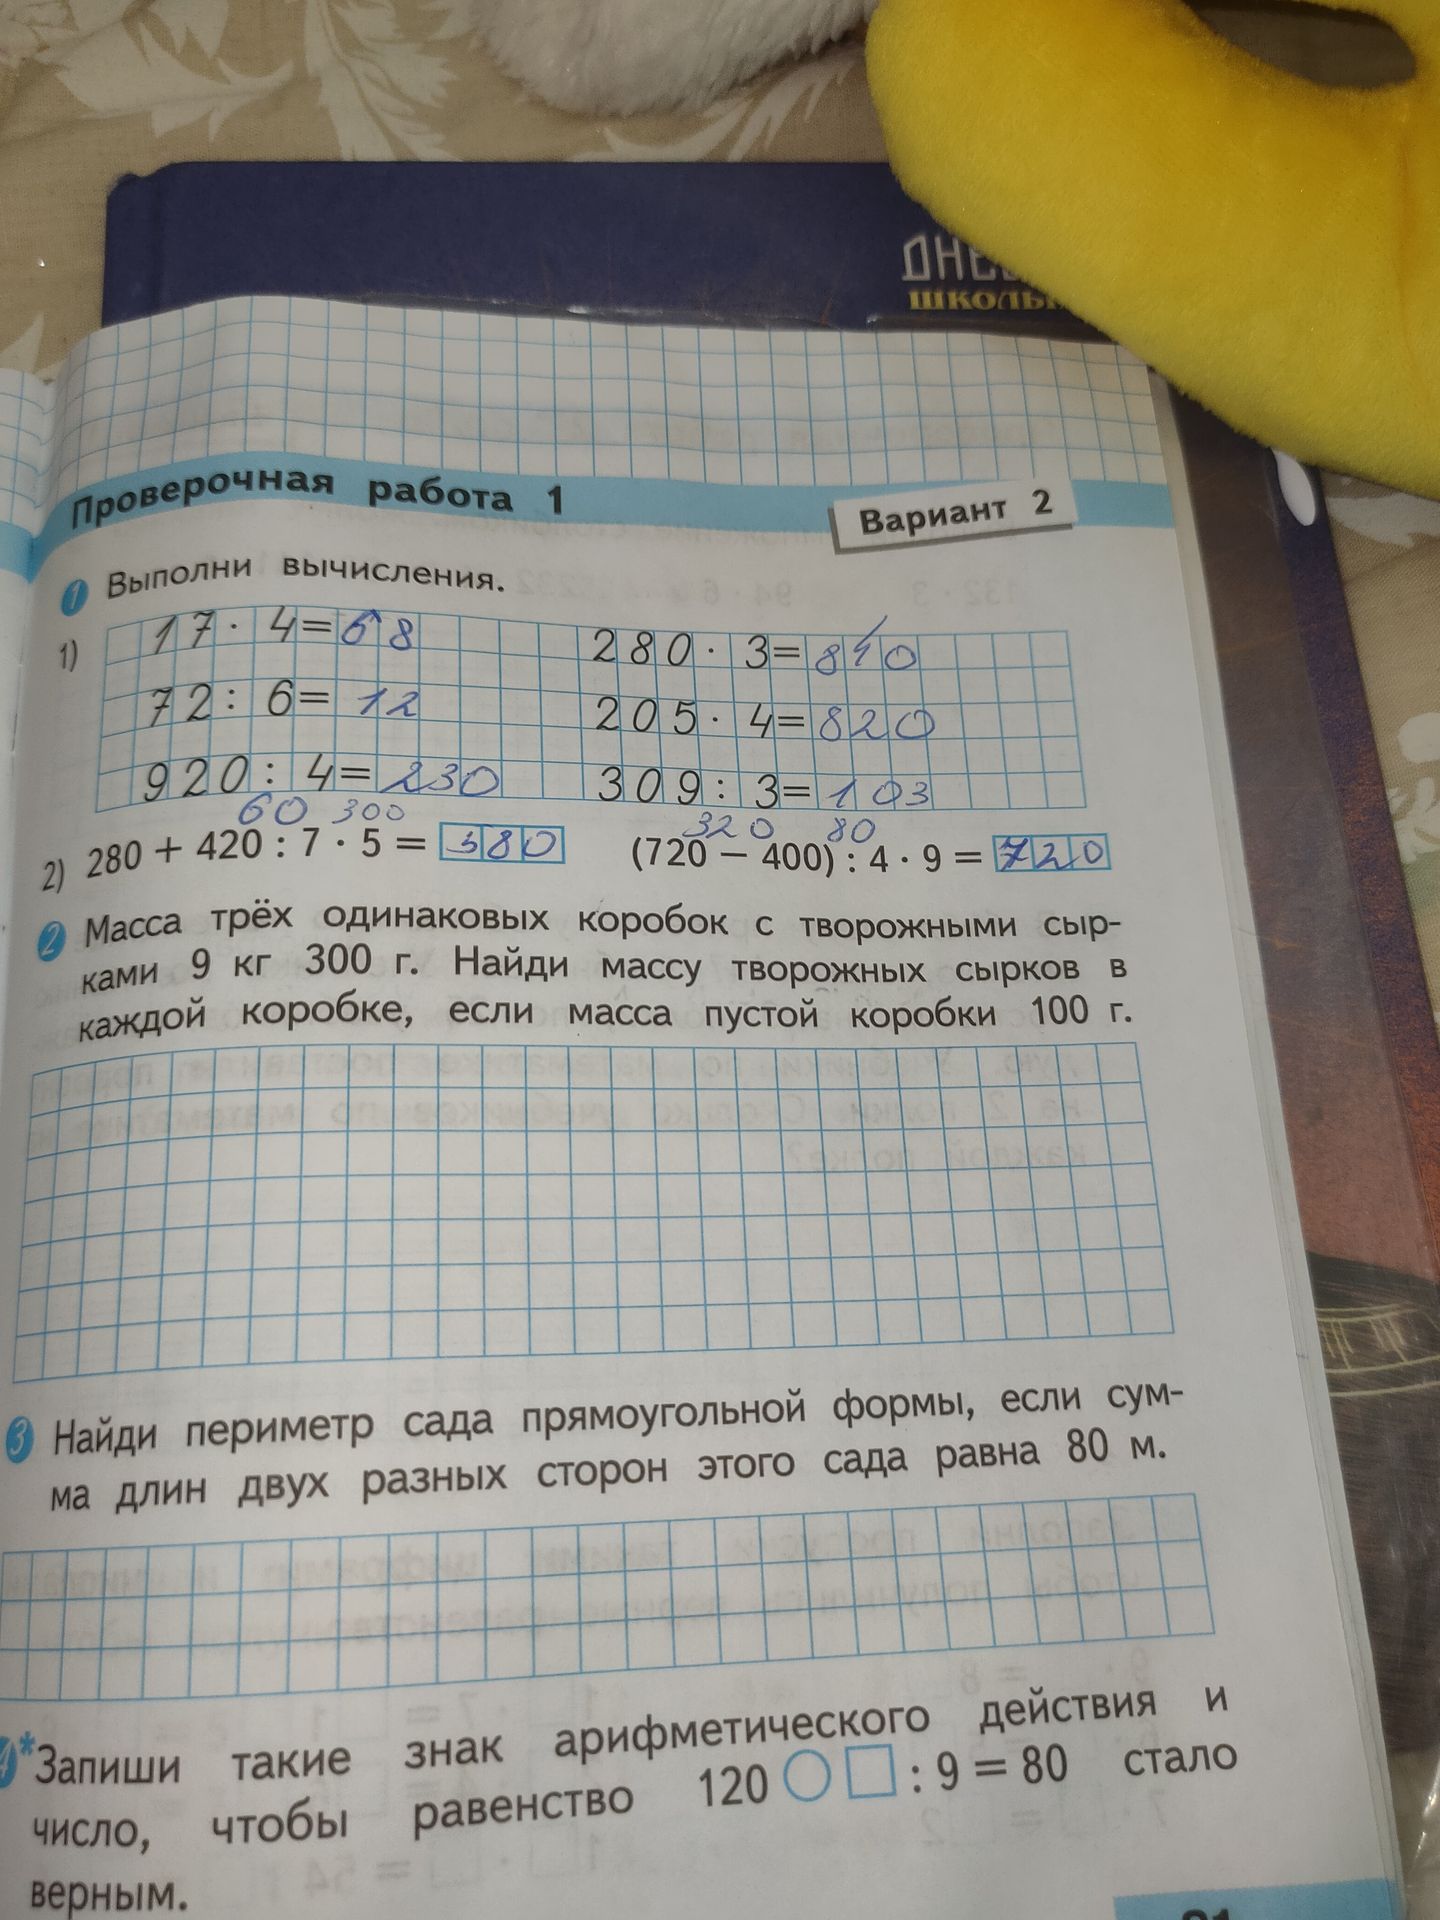 Проверочная работа 1
Вариант 2
1 Выполни вычисления.
1) 17 · 4 = 68 280 · 3 = 840
72 : 6 = 12 205 · 4 = 820
920 : 4 = 230 309 : 3 = 103
60 300 320 80
2) 280 + 420 : 7 · 5 = 580 (720 − 400) : 4 · 9 = 720
2 Масса трёх одинаковых коробок с творожными сыр-
ками 9 кг 300 г. Найди массу творожных сырков в
каждой коробке, если масса пустой коробки 100 г.
3 Найди периметр сада прямоугольной формы, если сум-
ма длин двух разных сторон этого сада равна 80 м.
4* Запиши такие знак арифметического действия и
число, чтобы равенство 120 ○ □ : 9 = 80 стало
верным.